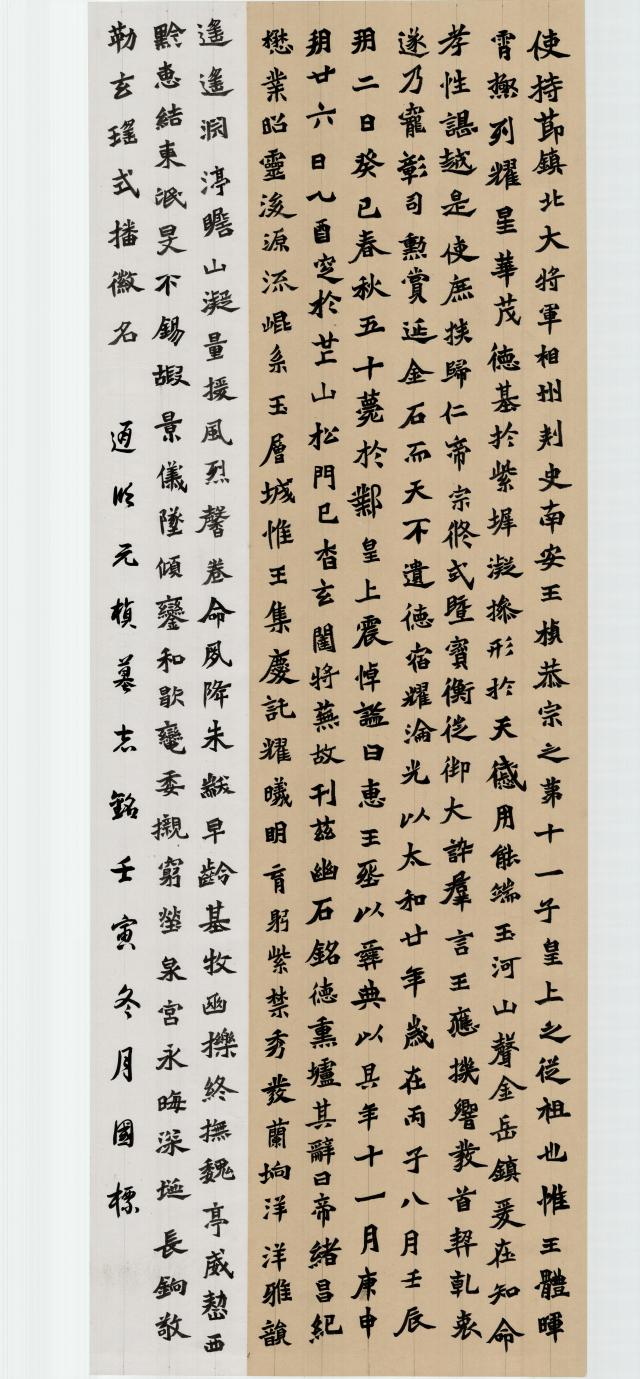 使持節鎮北大將軍相州刺史南安王楨恭宗之第十一子皇上之從祖也惟王體暉
霄極列耀星華茂德基於紫墀凝操形於天感用能端玉河山聲金岳鎮爰在知命
孝性諶越是使庶族歸仁帝宗攸式暨寶衡徙御大訊群言王應機響發首契乾衷
遂乃寵彰司勳賞延金石而天不遺德宿耀淪光以太和廿年歲在丙子八月壬辰
朔二日癸巳春秋五十薨於鄴皇上震悼謚曰惠王葬以彝典以其年十一月庚申
朔廿六日乙酉窆於芒山松門已杳玄闥將蕪故刊茲幽石銘德熏壚其辭曰帝緒昌紀
懋業昭靈浚源流崐系玉層城惟王集慶託耀曦明育躬紫禁秀發蘭坰洋洋雅韻
遥遥淵渟瞻山凝量援風烈馨卷命夙降朱黻早齡基牧幽櫟終撫魏亭威愬西
黔惠結東氓旻不錫嘏景儀墜傾鑾和歇轙委櫬窮塋泉宮永晦深埏長鍧敬
勒玄瑤式播徽名 適臨元楨墓志銘壬寅冬月國標